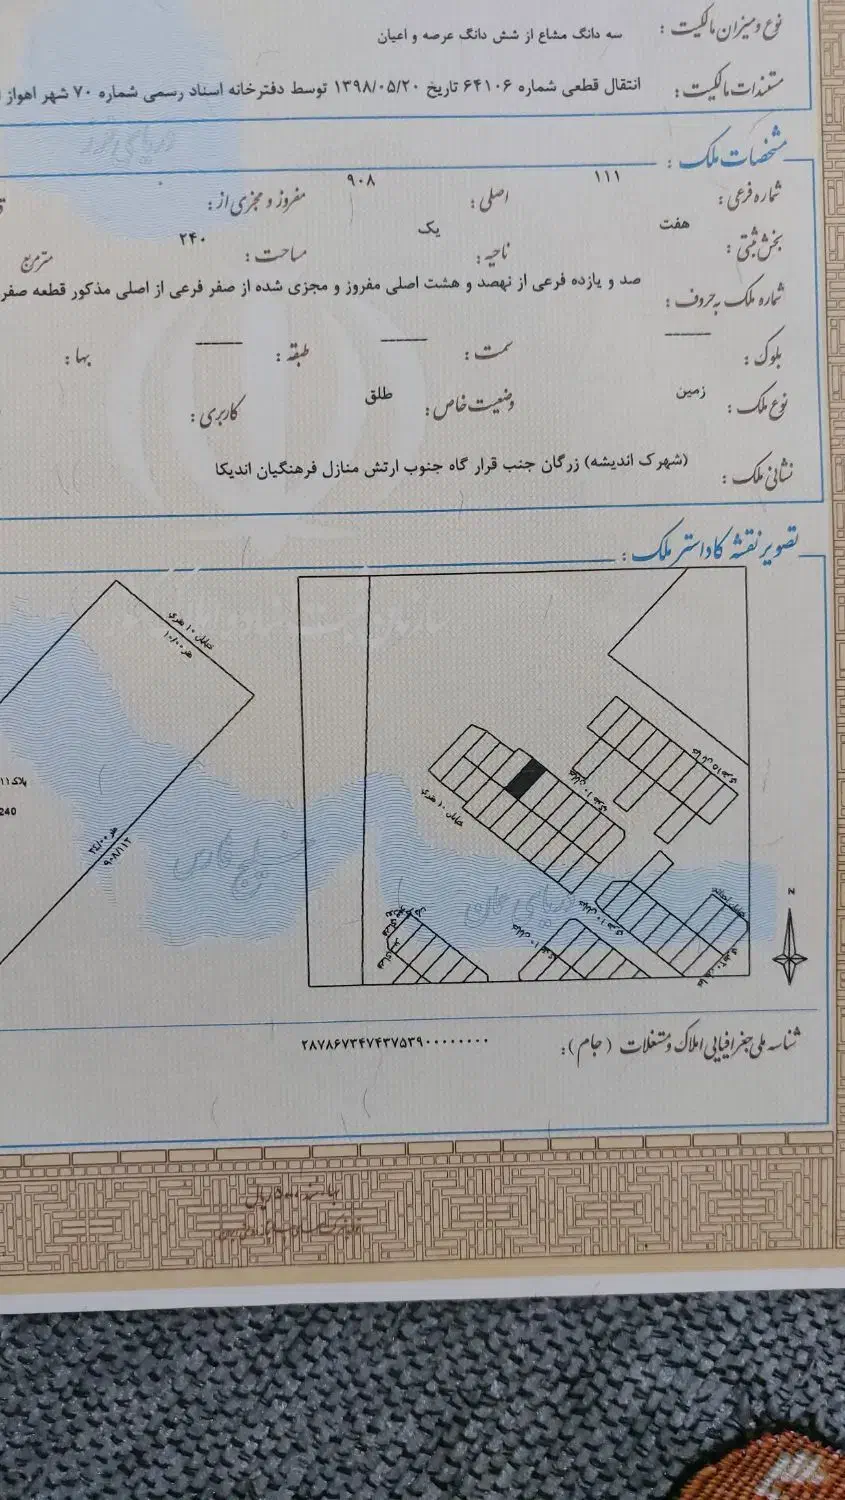 نوع و میزان مالکیت : سه دانگ مشاع از شش دانگ عرصه و اعیان
مستندات مالکیت : انتقال قطعی شماره ۶۴۱۰۶ تاریخ ۱۳۹۸/۰۵/۲۰ توسط دفترخانه اسناد رسمی شماره ۷۰ شهر اهواز
مشخصات ملک :
شماره فرعی : ۱۱۱ اصلی : ۹۰۸ مفروز و مجزی از :
بخش ثبتی : هفت ناحیه : یک مساحت : ۲۴۰ مترمربع
شماره ملک به حروف : صد و یازده فرعی از نهصد و هشت اصلی مفروز و مجزی شده از صفر فرعی از اصلی مذکور قطعه صفر
بلوک : سمت : طبقه : بها :
نوع ملک : زمین وضعیت خاص : طلق کاربری :
نشانی ملک : (شهرک اندیشه) زرگان جنب قرار گاه جنوب ارتش منازل فرهنگیان اندیکا
تصویر نقشه کاداستر ملک :
خیابان ۱۰ متری
۱۰/۰۰ متر
240
۲۴/۰۰ متر
۹۰۸/۱۱۲
خیابان ۱۵ متری
خیابان ۱۰ متری
خیابان ۱۰ متری
خیابان ۱۰ متری
خیابان ۱۰ متری
خلیج فارس
دریای عمان
N
شناسه ملی جغرافیایی املاک و مستغلات (جام) : ۲۸۷۸۶۷۳۴۷۴۳۷۵۳۹۰۰۰۰۰۰۰۰